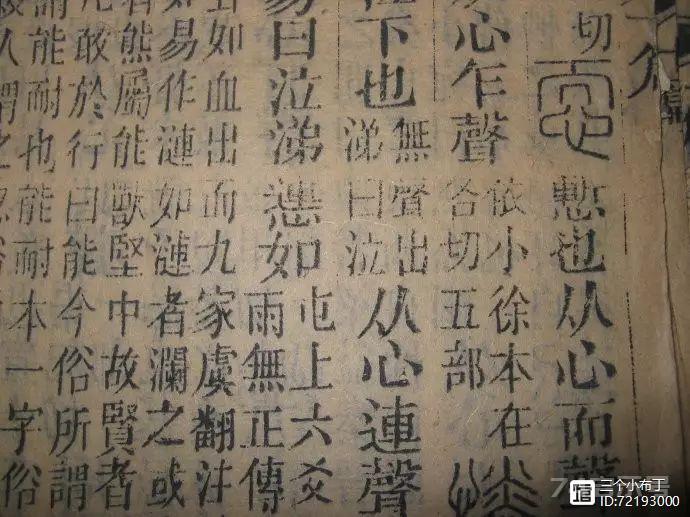 切
慙也从心而聲
心乍聲
依小徐本在
各切五部
下也
無聲出
涕曰泣
从心連聲
易曰泣涕如
屯上六爻
雨無正傳
如血出而九家虞翻注
易作漣如漣者瀾之或
熊屬能獸堅中故賢者
敢於行曰能今俗所謂
能耐也能耐本一字俗
人謂之
三个小布丁
ID:72193000